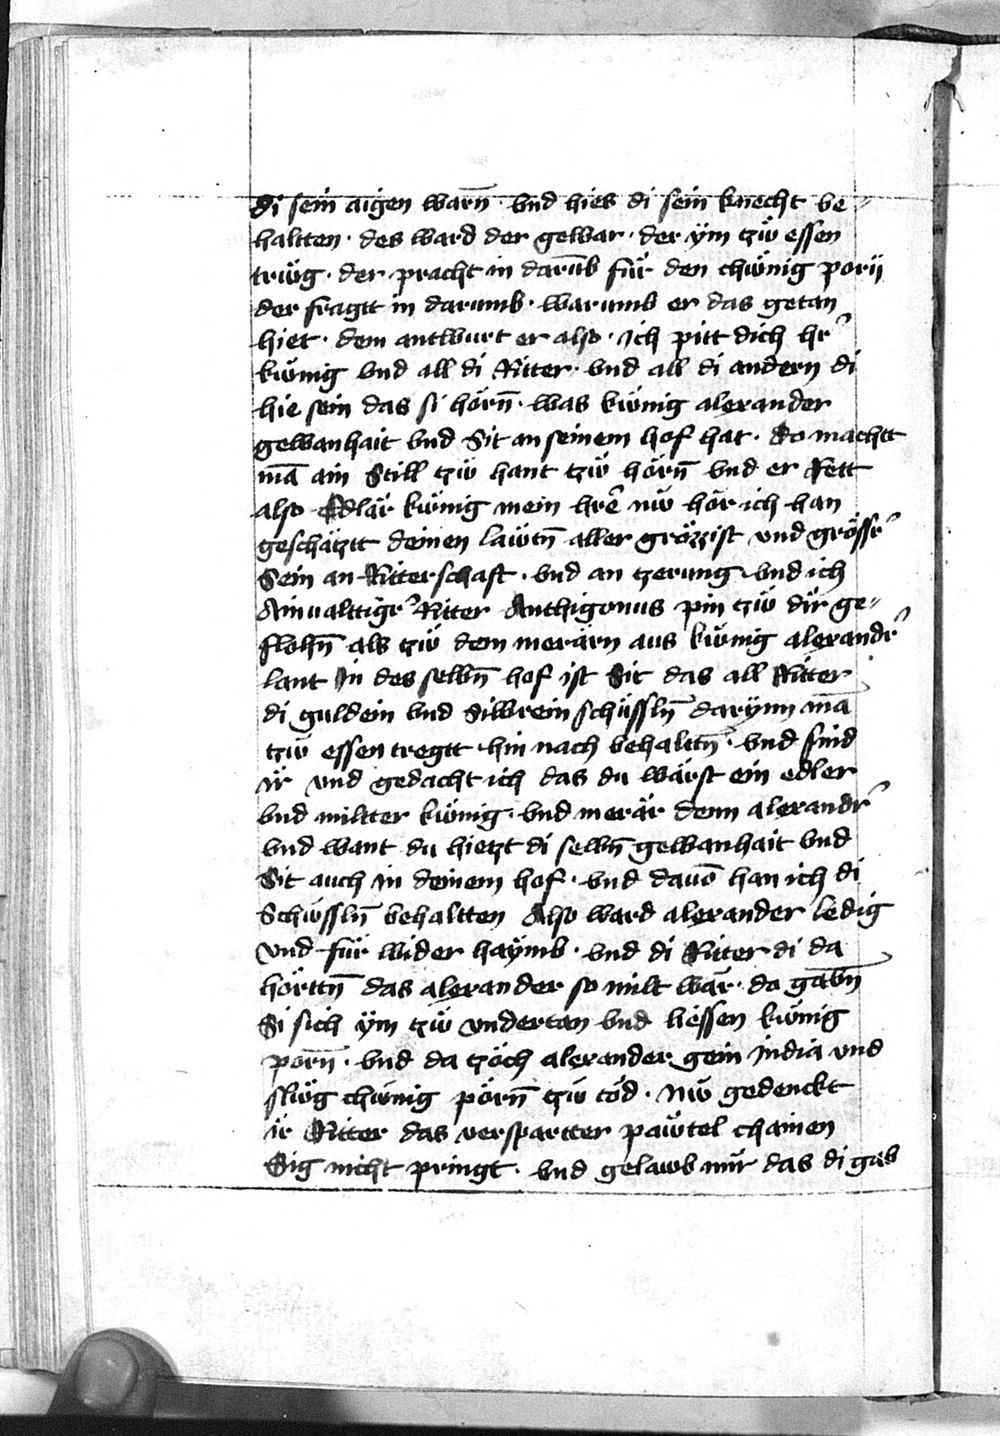 di sein aigen warn̄ · vnd hies di sein knecht be-
haltten · des ward der gewar · der ÿm tzẅ essen
trẅg · der pracht in darūb für den chẅnig porij
der fragtt in darumb · warumb er das getan
hiet · dem antwurt er also · ich pitt dich hr̄
kẅnig vnd all di Ritter · vnd all di andern di
hie sein das si hörn̄ · was kẅnig alexander
gewanhait vnd Sit an seinem hof hat · do machtt
mā ain Still tzẅ hant tzẅ hörn̄ vnd er Rett
also Edlär kẅnig mein hrē nẅ hör ich han
geschätztt deinen läwtn̄ aller grözzist vnd grössr̄
Sein an Ritterschaft · vnd an tzerung vnd ich
Ainualttigr̄ Ritter Anthigonus pin tzẅ dir ge-
flohn̄ als tzẅ dem merärn aus kẅnig alexandr̄
lant In des selbn̄ hof ist Sit das all Ritter
di guldein vnd Silbrein schüssln̄ darÿnn mā
tzẅ essen tregtt · hin nach behaltn̄ · vnd sind
ir vnd gedacht ich das du wärst ein edler
vnd miltter kẅnig · vnd merär denn alexandr̄
vnd want du hietzt di selbn̄ gewanhait vnd
Sit auch in deinem hof · vnd dauō han ich di
Schẅssln̄ behaltten Also ward alexander ledig
vnd für wider haÿmb · vnd di Ritter di da
hörttn̄ das alexander so milt wär · do gabn̄
Si sich ÿm tzẅ vndertan vnd liessen kẅnig
porn̄ · vnd da tzöch alexander gein india vnd
slẅg chẅnig pörn̄ tzẅ töd · Nẅ gedenckt
ir Ritter das versparter päwtel chainen
Sig nicht pringt · vnd gelawb mir das di gab